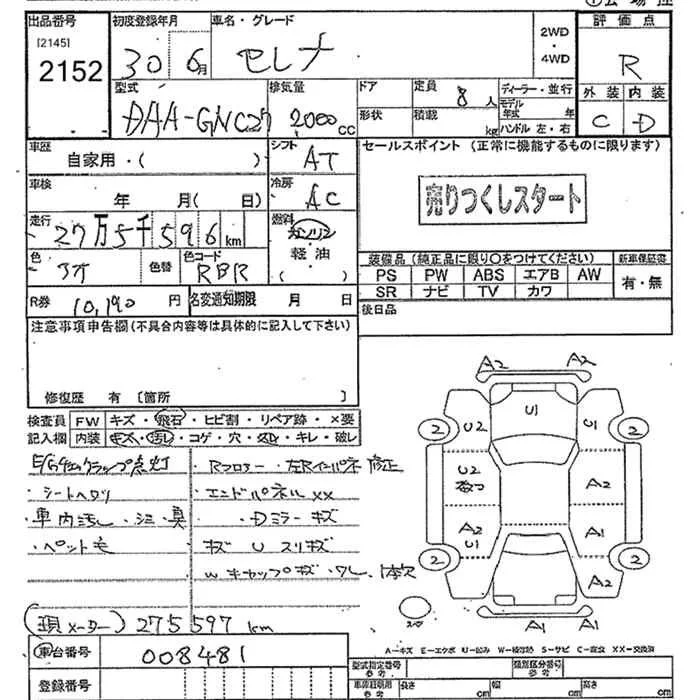 出品番号 初度登録年月 車名・グレード 2WD・4WD 評価点
[2145]
2152 30 6月 セレナ R
型式 排気量 ドア 定員 8人 ディーラー・並行 外装 内装
DAA-GNC27 2000CC 形状 積載 kg モデル年式 年 ハンドル 左・右 C D
車歴 シフト セールスポイント(正常に機能するものに限ります)
自家用・( ) AT
車検 冷房 売りつくしスタート
年 月( 日) AC
走行 燃料
27万5千596km ガソリン
軽油
色 色替 色コード ( ) 装備品(純正品に限り〇をつけてください) 新車保証書
アオ RBR PS PW ABS エアB AW 有・無
R券 10,190円 名変通知期限 月 日 SR ナビ TV カワ
注意事項申告欄(不具合内容等は具体的に記入して下さい) 後日品
修復歴 有 [箇所 ]
検査員 FW キズ・飛石・ヒビ割・リペア跡・×要
記入欄 内装 キズ・汚し・コゲ・穴・スレ・キレ・破レ
・Rフロアー・左Rインパネ 修正
・シートヘタリ ・エンドパネル××
・車内汚し・シミ・臭 ・Dミラーキズ
・ペット毛 キズ U スリキズ
W キャップキズ・ワレ、1本欠
(現メーター) 275597km
車台番号 008481
登録番号
A2 A2
U1
2 U2 U1 2
U2 A2
A2 A1
U1
2 A2 2
A1 A1
A-キズ E-エクボ U-凹み W-補修跡 S-サビ C-腐食 XX-交換済
型式指定番号 参考 類別区分番号 参考
車両総寸法 参考 長さ cm 幅 cm 高さ cm